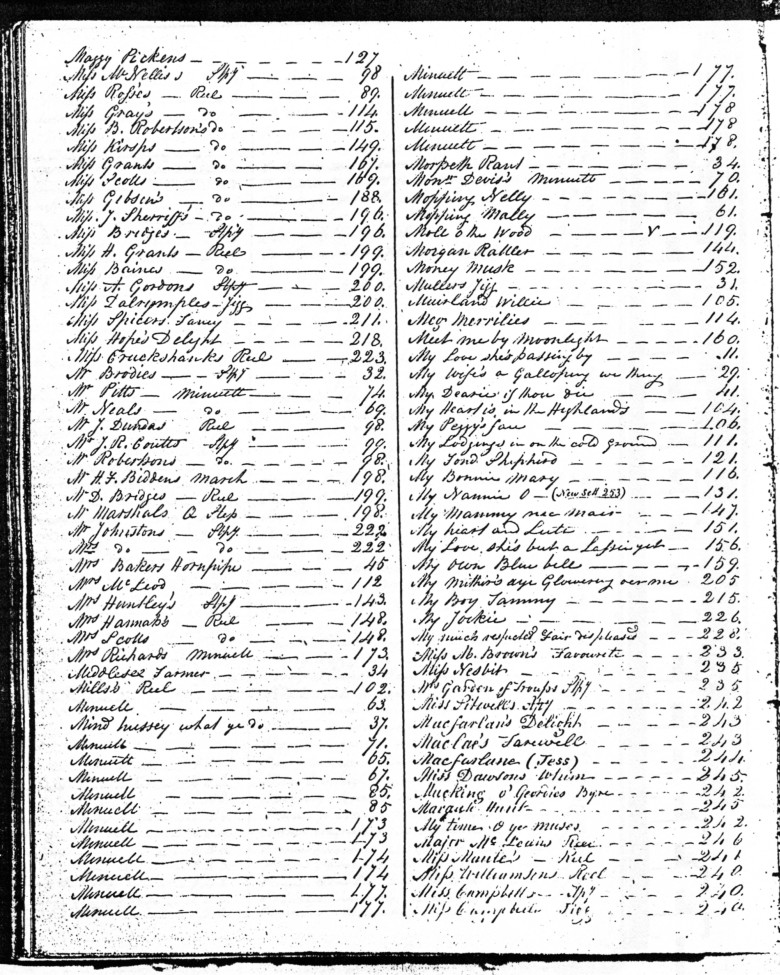 Maggy Pickens 127
Miss McNellis's Spy 98
Miss Rose's Reel 89.
Miss Gray's do 114.
Miss B. Robertson's do 115.
Miss Kirsps do 149.
Miss Grants do 167.
Miss Scotts do 169.
Miss Gibson's do 188.
Miss J. Sherriff's do 196.
Miss Bridges Spy 196.
Miss H. Grants Reel 199.
Miss Baines do 199.
Miss A. Gordons Spy 200.
Miss Dalrymples Jigg 200.
Miss Spicers Fancy 211.
Miss Hope's Delight 218.
Miss Cruckshanks Reel 223.
Mr Brodies Spy 32.
Mr Pitts minuett 74.
Mr Neals do 69.
Mr J. Dundas Reel 98.
Mr J. R. Coutts Spy 99.
Mr Robertsons do 98.
Mr H. F. Biddens March 198.
Mr D. Bridges Reel 199.
Mr Marshals a Step 198.
Mr Johnstons Spy 222
Mrs do do 222
Mrs Bakers Hornpipe 45
Mrs McLeod 112
Mrs Huntley's Spy 143.
Mrs Hannah's Reel 148.
Mrs Scotts do 148.
Mrs Richards Minuett 173.
Middlesex Farmer 34
Mills's Reel 102.
Minuett 63.
Mind hussey what ye do 37.
Minuett 71.
Minuett 65.
Minuett 67.
Minuett 85.
Minuett 85
Minuett 173
Minuett 173
Minuett 174
Minuett 174
Minuett 177.
Minuett 177.
Minuett 177.
Minuett 177.
Minuett 178
Minuett 178
Minuett 178.
Morpeth Rant 34.
Monsr Devis's Minuett 70.
Mopping Nelly 161.
Mopping Mally 61.
Moll o the Wood V 119.
Morgan Rattler 144.
Money Musk 152.
Mullers Jigg 31.
Muirland Willie 105.
Meg Merrilies 114.
Meet me by Moonlight 160.
My Love she's passing by 11.
My Wife's a Galloping we thing 29.
My Dearie if thou die 41.
My Heart is in the Highlands 104.
My Peggy's face 106.
My Lodging is on the cold ground 111.
My Fond Shepherd 121.
My Bonnie Mary 116.
My Nannie O (New Sett 253) 131.
My Mammy nae mair 147.
My heart and Lute 151.
My Love she's but a Lassie yet 156.
My own Blue bell 159.
My mither's aye Glowering oer me 205
My Boy Tammy 215.
My Jockie 226.
My much respected Fair displeased 228.
Miss M. Brown's Favourite 233.
Miss Nesbit 235
Mrs Garden of Troups Spy 235
Miss Sitwells Spy 242
Macfarlan's Delight 243
Maclac's Farewell 243
Macfarlane (Jess) 244.
Miss Dawsons Whim 245
Mucking o' Geordies Byre 242.
Hunt 245
My time O ye muses 242.
Major Mc Lewis Reel 246
Miss Reel 241
Miss Williamsons Reel 240.
Miss Campbells Spy 240.
Miss Campbells Jigg 240.